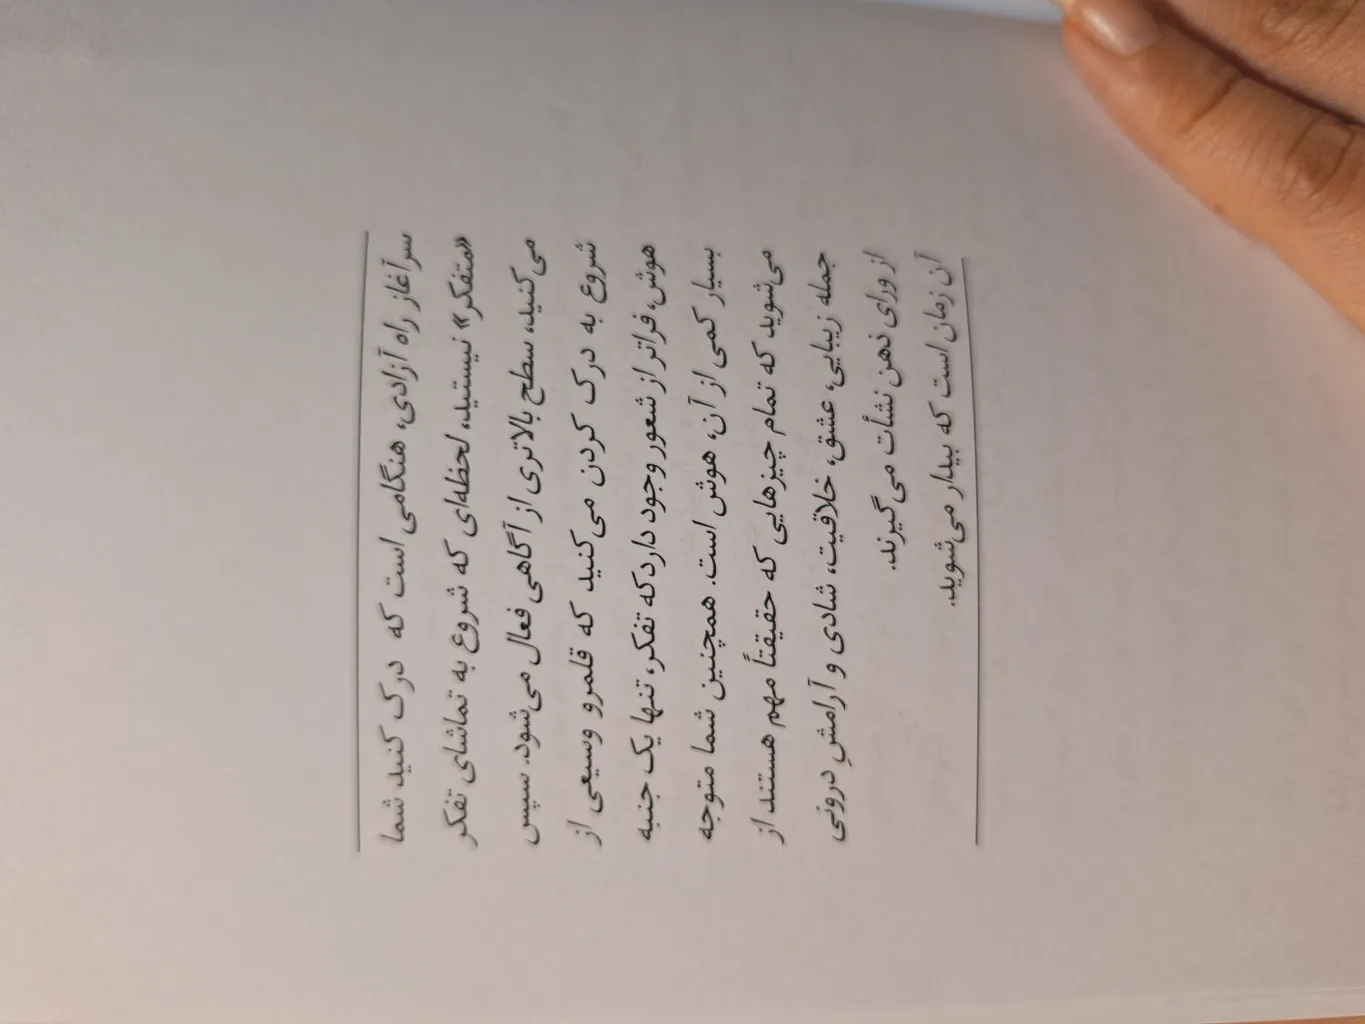 سرآغاز راه آزادی، هنگامی است که درک کنید شما
«متفکر» نیستید، لحظه‌ای که شروع به تماشای تفکر
می‌کنید، سطح بالاتری از آگاهی فعال می‌شود. سپس
شروع به درک کردن می‌کنید که قلمرو وسیعی از
هوش، فراتر از شعور وجود دارد که تفکر، تنها یک جنبه
بسیار کمی از آن، هوش است. همچنین شما متوجه
می‌شوید که تمام چیزهایی که حقیقتاً مهم هستند از
جمله زیبایی، عشق، خلاقیت، شادی و آرامشِ درونی
از ورای ذهن نشأت می‌گیرند.
آن زمان است که بیدار می‌شوید.